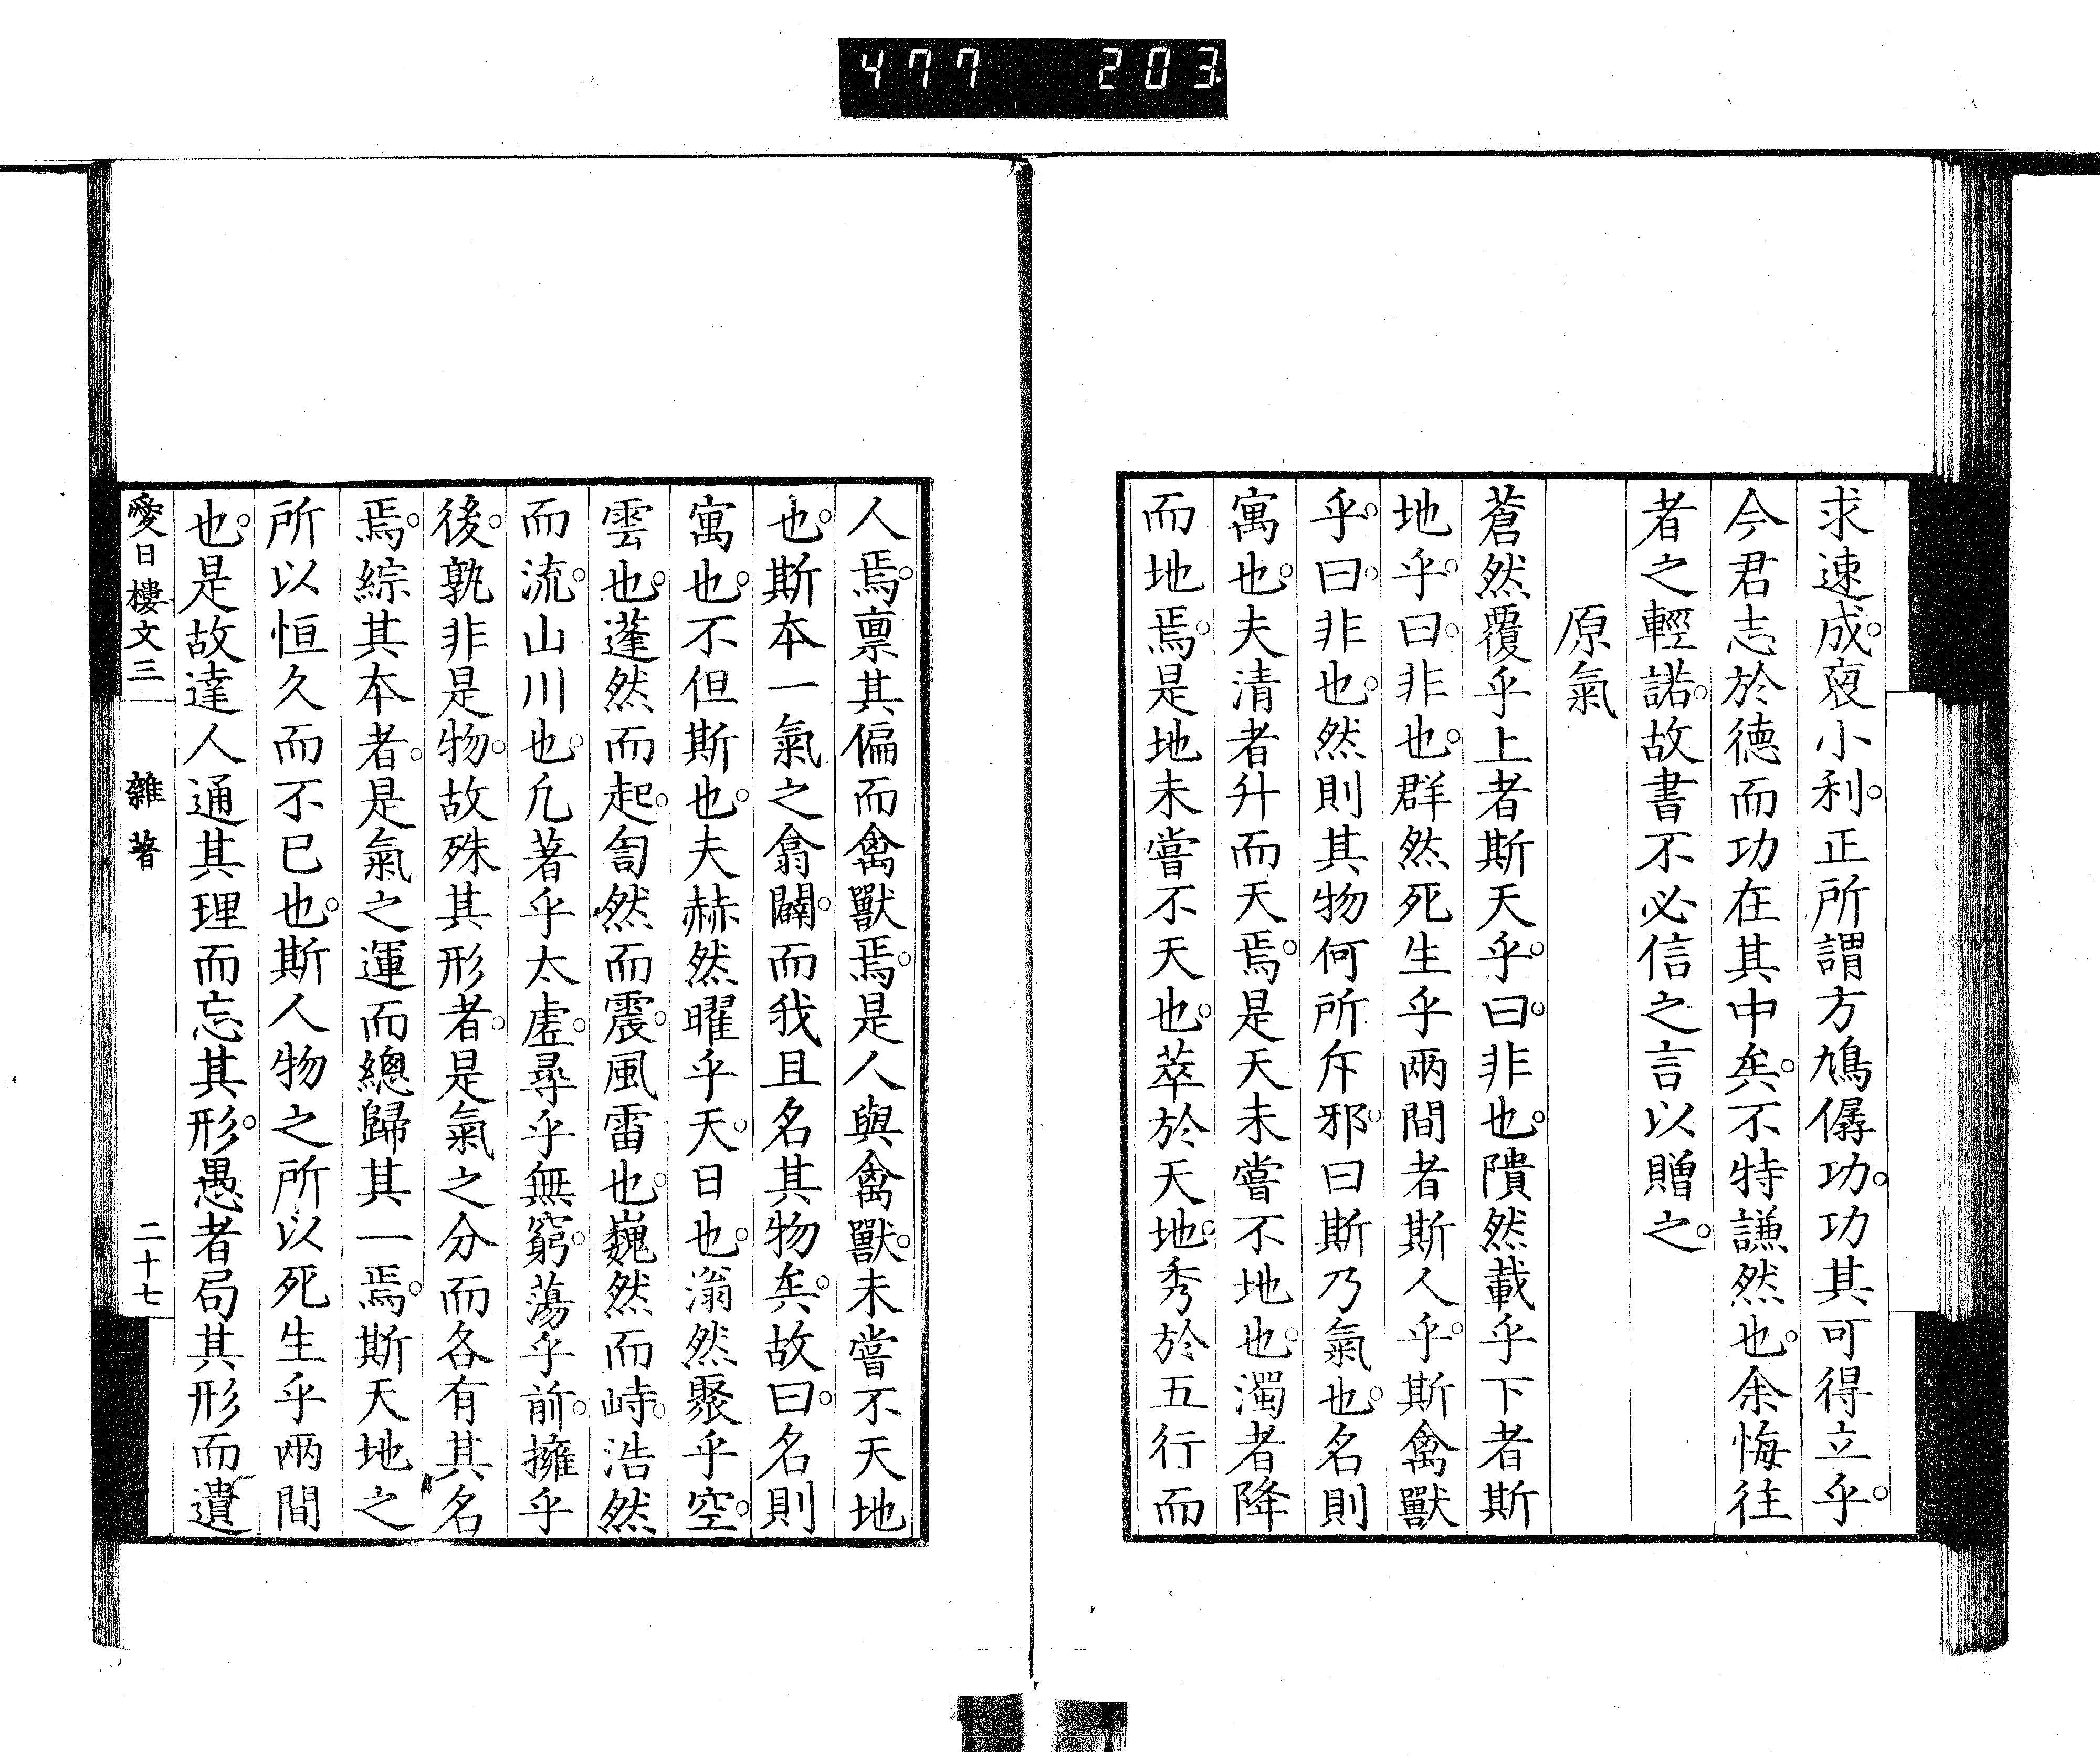 477 203
求速成。襃小利。正所謂方鳩僝功。功其可得立乎。
今君志於徳而功在其中矣。不特謙然也。余悔往
者之輕諾。故書不必信之言以贈之。
原氣
蒼然覆乎上者斯天乎。曰。非也。隤然載乎下者斯
地乎。曰。非也。群然死生乎兩間者斯人乎。斯禽獸
乎。曰。非也。然則其物何所斥邪。曰斯乃氣也。名則
寓也。夫清者升而天焉。是天未嘗不地也。濁者降
而地焉。是地未嘗不天也。萃於天地。秀於五行而
人焉。禀其偏而禽獸焉。是人與禽獸。未嘗不天地
也。斯本一氣之翕闢。而我且名其物矣。故曰。名則
寓也。不但斯也。夫赫然曜乎天。日也。滃然聚乎空。
雲也。蓬然而起。訇然而震。風雷也。巍然而峙。浩然
而流。山川也。凢著乎太虛。尋乎無窮。蕩乎前。擁乎
後。孰非是物。故殊其形者。是氣之分而各有其名
焉。綜其本者。是氣之運而總歸其一焉。斯天地之
所以恒久而不已也。斯人物之所以死生乎兩間
也。是故達人通其理而忘其形。愚者局其形而遺
愛日樓文三 雜著 二十七